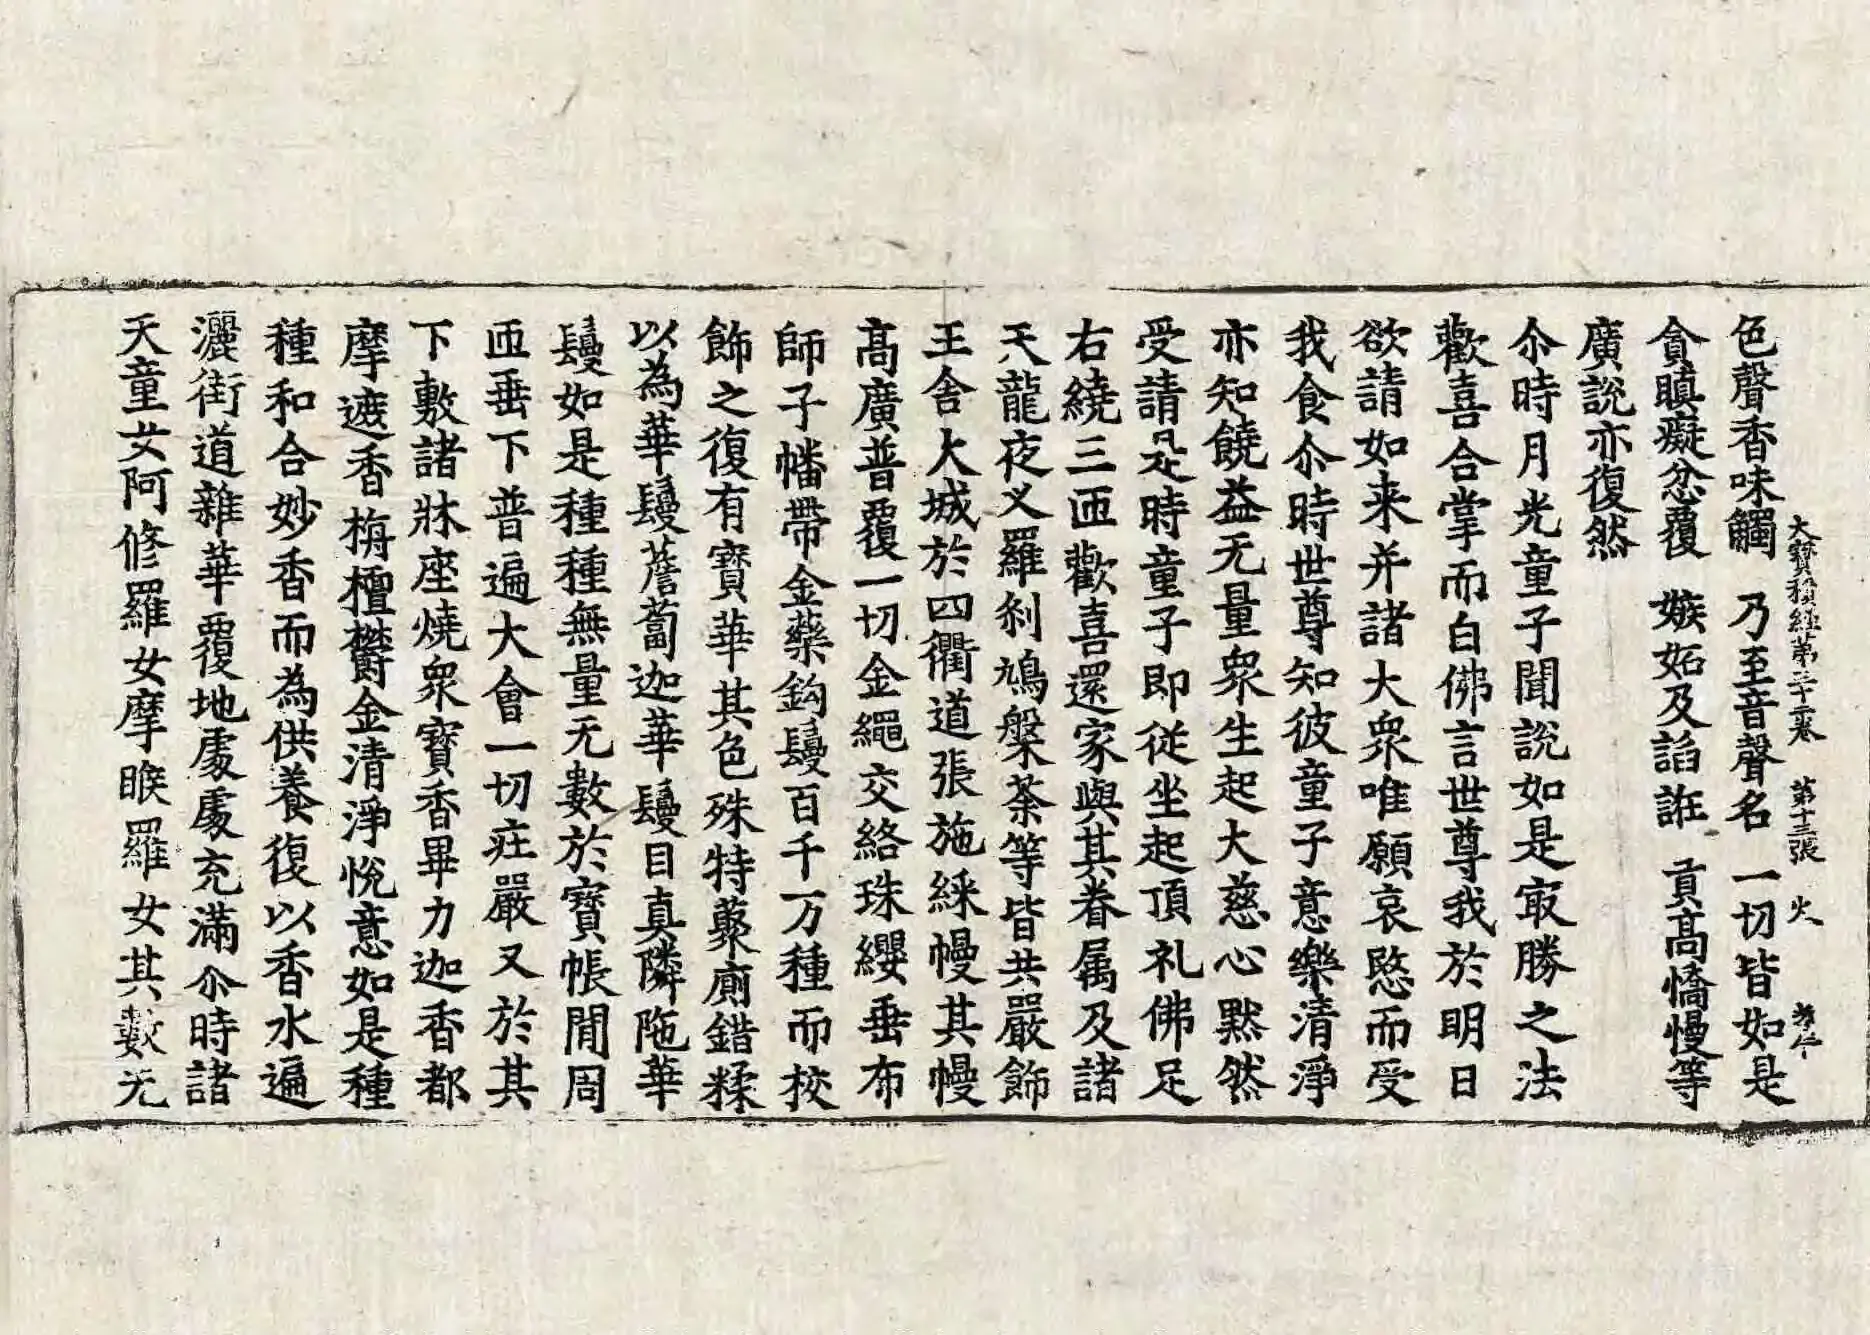 大寶積經苐三十二卷　第十三張　火
色聲香味觸　乃至音聲名　一切皆如是
貪瞋癡忿覆　嫉妬及諂誑　貢髙憍慢等
廣說亦復然
尒時月光童子聞說如是㝡勝之法
歡喜合掌而白佛言世尊我於明日
欲請如来并諸大衆唯願哀愍而受
我食尒時世尊知彼童子意樂清淨
亦知饒益无量衆生起大慈心黙然
受請是時童子即從坐起頂礼佛足
右繞三匝歡喜還家與其眷属及諸
天龍夜叉羅剎鳩槃荼等皆共嚴飾
王舍大城於四衢道張施綵幔其幔
髙廣普覆一切金繩交絡珠纓垂布
師子幡帶金藥鈎鬘百千万種而挍
飾之復有寶華其色殊特藂廁錯糅
以為華鬘薝蔔迦華鬘目真隣陁華
鬘如是種種無量无數於寶帳閒周
匝垂下普遍大會一切莊嚴又於其
下敷諸牀座燒衆寶香畢力迦香都
摩遮香栴檀欝金清淨悅意如是種
種和合妙香而為供養復以香水遍
灑街道雜華覆地處處充滿尒時諸
天童女阿修羅女摩睺羅女其數无